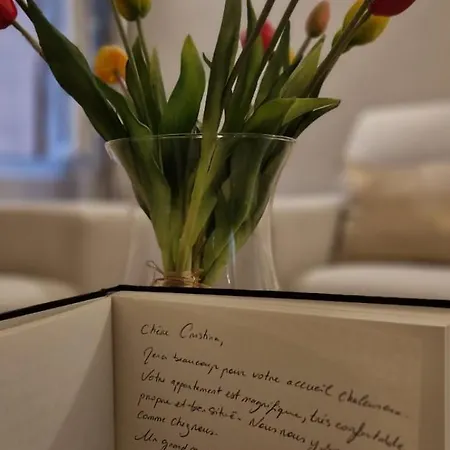 Chère Cristina,
beaucoup pour votre accueil chaleureux.
Votre appartement est magnifique, très confortable
propre et bien situé. Nous nous y
comme chez nous.
Un grand